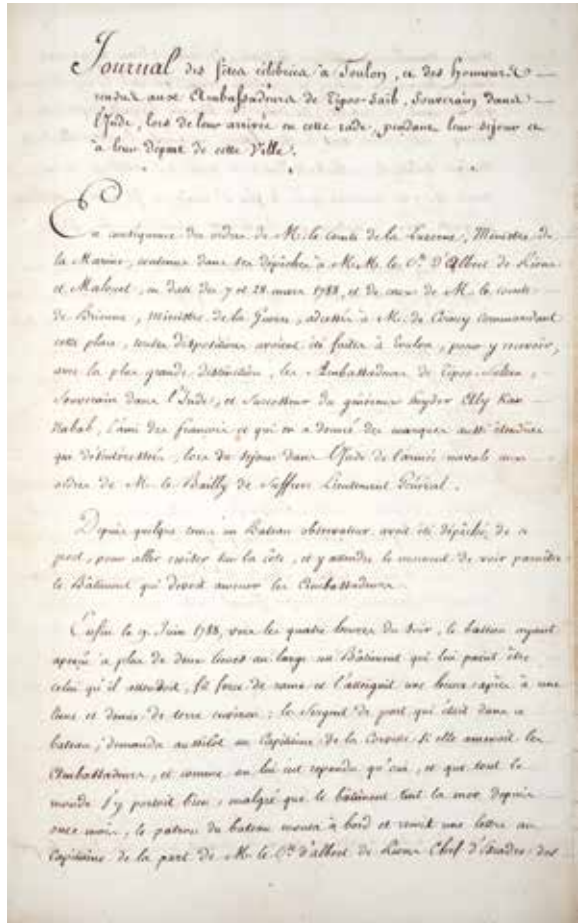 Journal des fêtes célébrées à Toulon, et des honneurs
rendus aux Ambassadeurs de Tipoo-Saib, Souverain dans
l'Inde, lors de leur arrivée en cette rade, pendant leur séjour et
à leur départ de cette Ville.
En conséquence des ordres de M. le Comte de la Luzerne, Ministre de
la Marine, contenus dans ses dépêches à M.M. le Cte. D'Albert de Rions
et Malouet, en date des 7 et 28 mars 1788, et de ceux de M. le comte
de Brienne, Ministre de la Guerre, adressés à M. de Coincy Commandant
cette place, toutes dispositions avoient été faites à Toulon, pour y recevoir,
avec la plus grande distinction, les Ambassadeurs de Tipoo-Sultan,
Souverain dans l'Inde, et Successeur du généreux hyder Aly Kan
Nabab, l'ami des françois et qui en a donné des marques aussi étendues
que désintéressées, lors du séjour dans l'Inde de l'armée navale aux
ordres de M. le Bailly de Suffren Lieutenant Général.
Depuis quelque tems un Bateau observateur avoit été dépêché de ce
port, pour aller croiser sur la côte, et y attendre le moment de voir paroître
le Bâtiment qui devoit amener les Ambassadeurs.
Enfin le 9 Juin 1788, vers les quatre heures du soir, le bateau ayant
aperçu à plus de deux lieues au large un Bâtiment qui lui parut être
celui qu'il attendoit, fit force de rame et l'atteignit une heure après à une
lieue et demie de terre environ; le Sergent de port qui étoit dans ce
bateau, demanda aussitôt au Capitaine de la Corvette si elle amenoit les
Ambassadeurs, et comme on lui eut repondu qu'oui, et que tout le
monde s'y portoit bien, malgré que le bâtiment tint la mer depuis
onze mois, le patron du bateau monta à bord et remit une lettre au
Capitaine de la part de M. le Cte. d'albert de Rions Chef d'Escadre des